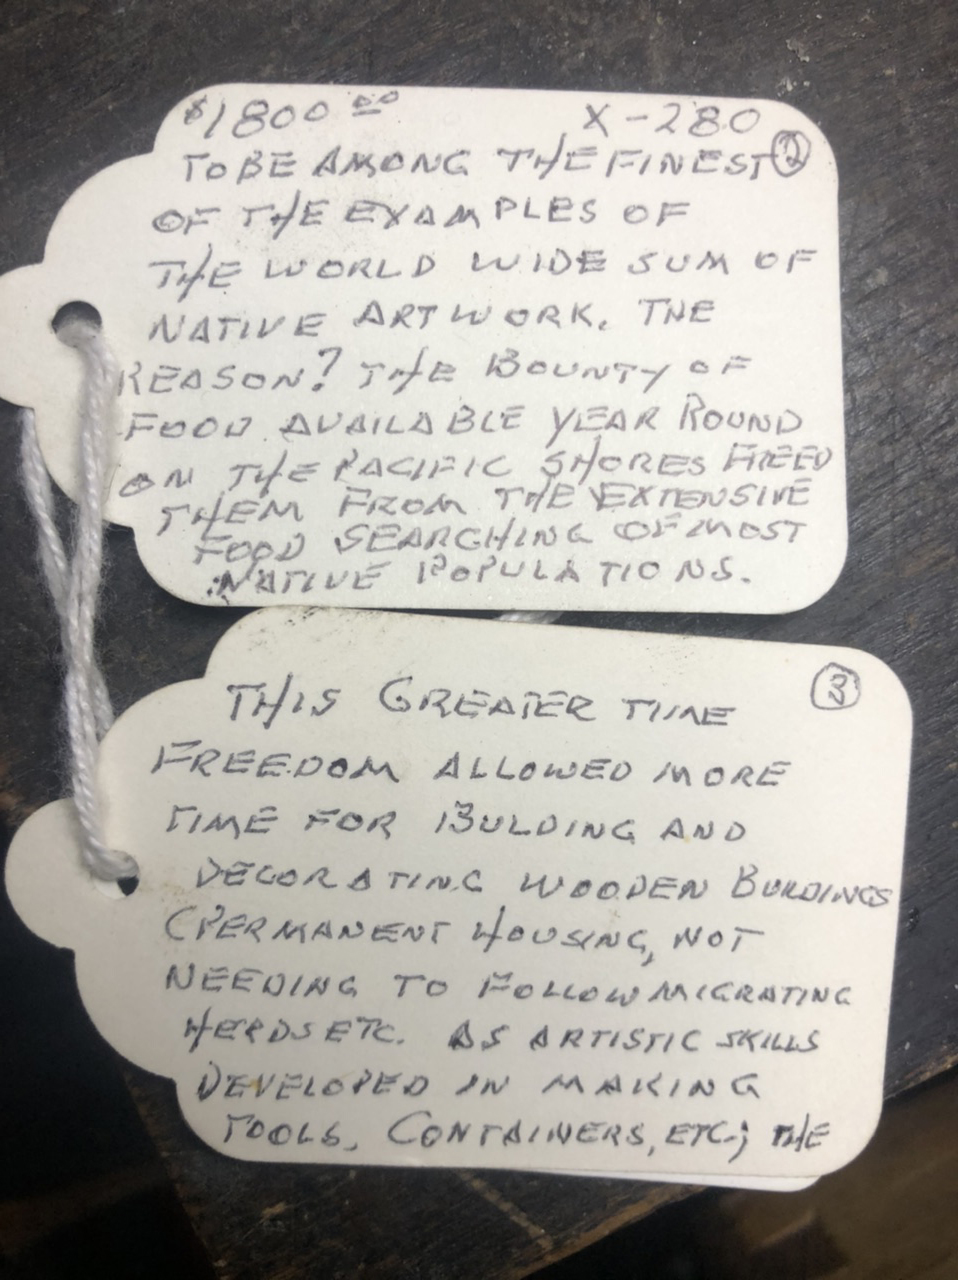 $1800.00 X-280
TO BE AMONG THE FINEST ②
OF THE EXAMPLES OF
THE WORLD WIDE SUM OF
NATIVE ARTWORK. THE
REASON? THE BOUNTY OF
FOOD AVAILABLE YEAR ROUND
ON THE PACIFIC SHORES FREED
THEM FROM THE EXTENSIVE
FOOD SEARCHING OF MOST
NATIVE POPULATIONS.
THIS GREATER TIME ③
FREEDOM ALLOWED MORE
TIME FOR BULDING AND
DECORATING WOODEN BUILDINGS
(PERMANENT HOUSING, NOT
NEEDING TO FOLLOW MIGRATING
HERDS ETC. AS ARTISTIC SKILLS
DEVELOPED IN MAKING
TOOLS, CONTAINERS, ETC.; THE